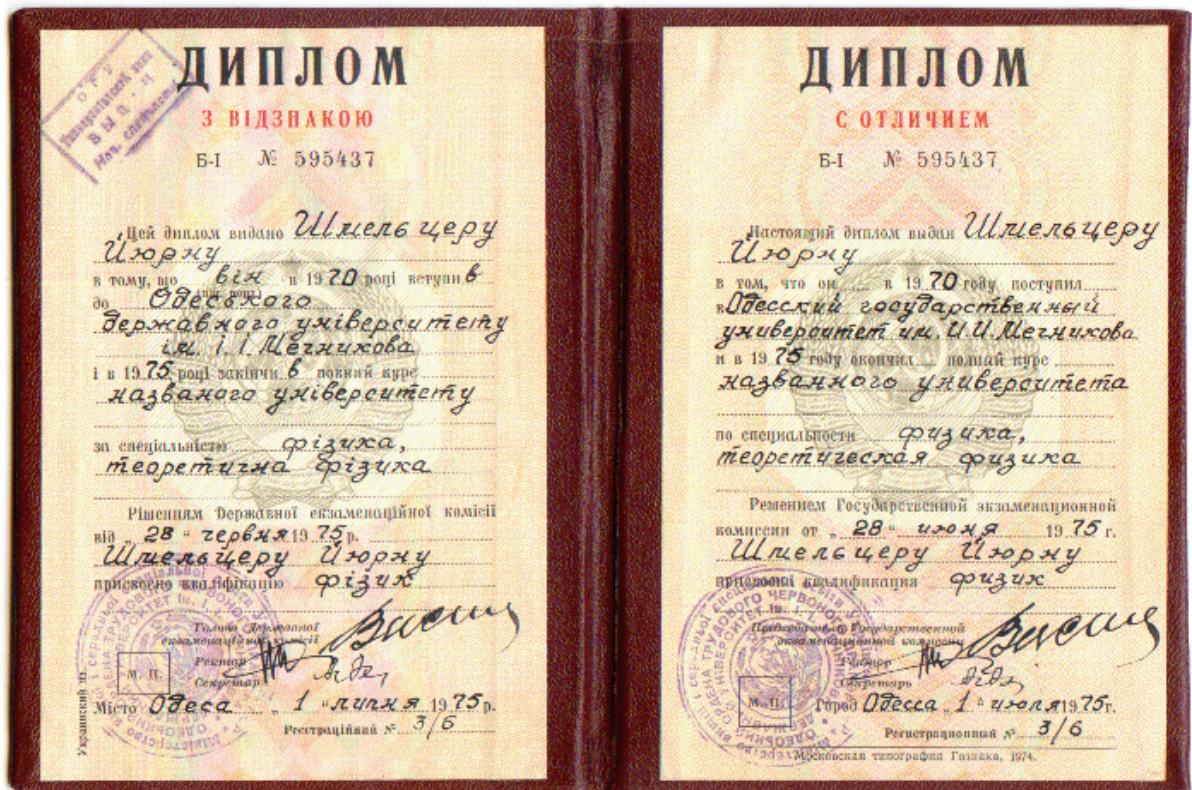 ДИПЛОМ
З ВІДЗНАКОЮ
Б-I № 595437
Цей диплом видано Шмельцеру
Йюрну
в тому, що він в 1970 році вступив
до Одеського
державного університету
ім. І. І. Мечникова
і в 1975 році закінчив повний курс
названого університету
за спеціальністю фізика,
теоретична фізика
Рішенням Державної екзаменаційної комісії
від „ 28 “ червня 1975 р.
Шмельцеру Йюрну
присвоєно кваліфікацію фізик
Голова Державної
екзаменаційної комісії
Ректор
Секретар
М. П.
Місто Одеса „ 1 “ липня 1975 р.
Реєстраційний № 3/6
Украинский яз.
ДИПЛОМ
С ОТЛИЧИЕМ
Б-I № 595437
Настоящий диплом выдан Шмельцеру
Йюрну
в том, что он в 1970 году поступил
в Одесский государственный
университет им. И. И. Мечникова
и в 1975 году окончил полный курс
названного университета
по специальности физика,
теоретическая физика
Решением Государственной экзаменационной
комиссии от „ 28 “ июня 1975 г.
Шмельцеру Йюрну
присвоена квалификация физик
Председатель Государственной
экзаменационной комиссии
Ректор
Секретарь
М. П.
Город Одесса „ 1 “ июля 1975 г.
Регистрационный № 3/6
Московская типография Гознака, 1974.